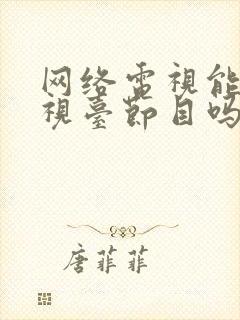 网络雷視能
視臺節目吗
唐菲菲